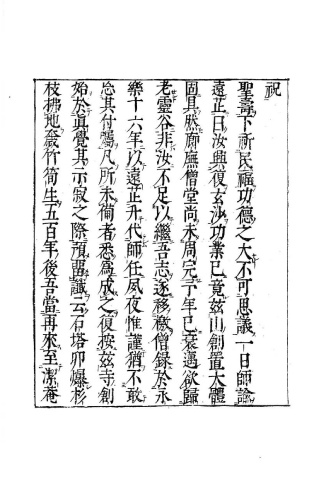 祝
聖壽下祈民福功德之大不可思議一日師諭
遠芷曰汝興復玄沙功業已竟玆山創置大體
固具然廊廡僧堂尚未周完予年已衰邁欲歸
老靈谷非汝不足以繼吾志遂移檄僧録於永
樂十六年以遠芷升代師任夙夜惟謹猶不敢
怠其付囑凡所未備者悉爲成之復按玆寺創
始於眞覺其示寂之際預畱讖云石塔卯爆杉
枝拂地菆竹筍生五百年後吾當再來至潔菴